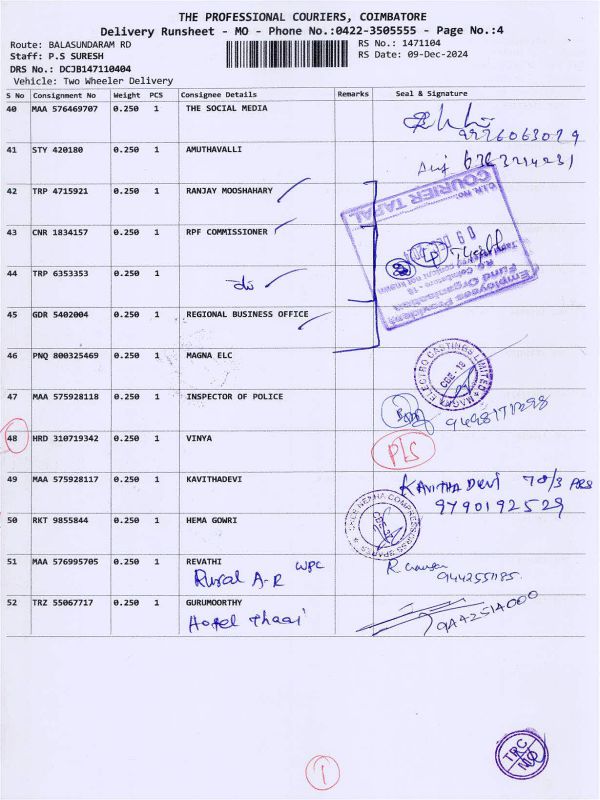 THE PROFESSIONAL COURIERS, COIMBATORE
Delivery Runsheet - MO - Phone No.:0422-3505555 - Page No.:4
Route: BALASUNDARAM RD
RS No.: 1471104
Staff: P.S SURESH
RS Date: 09-Dec-2024
DRS No.: DCJB147110404
Vehicle: Two Wheeler Delivery
S No Consignment No Weight PCS Consignee Details Remarks Seal & Signature
40 MAA 576469707 0.250 1 THE SOCIAL MEDIA
41 STY 420180 0.250 1 AMUTHAVALLI
42 TRP 4715921 0.250 1 RANJAY MOOSHAHARY
C.I.R. NO.
COURIER TAPAL
43 CNR 1834157 0.250 1 RPF COMMISSIONER
44 TRP 6353353 0.250 1 do
Employees Provident
Fund Organisation
45 GDR 5402004 0.250 1 REGIONAL BUSINESS OFFICE
46 PNQ 800325469 0.250 1 MAGNA ELC
MAGNA ELECTRO CASTINGS LIMITED
CBE - 18
47 MAA 575928118 0.250 1 INSPECTOR OF POLICE
9498171298
48 HRD 310719342 0.250 1 VINYA P/S
49 MAA 575928117 0.250 1 KAVITHADEVI KAVITHA DEVI
9790192529
50 RKT 9855844 0.250 1 HEMA GOWRI
51 MAA 576995705 0.250 1 REVATHI WPC
Rural A-R
52 TRZ 55067717 0.250 1 GURUMOORTHY
Hotel Thaai
TRC
MO
1